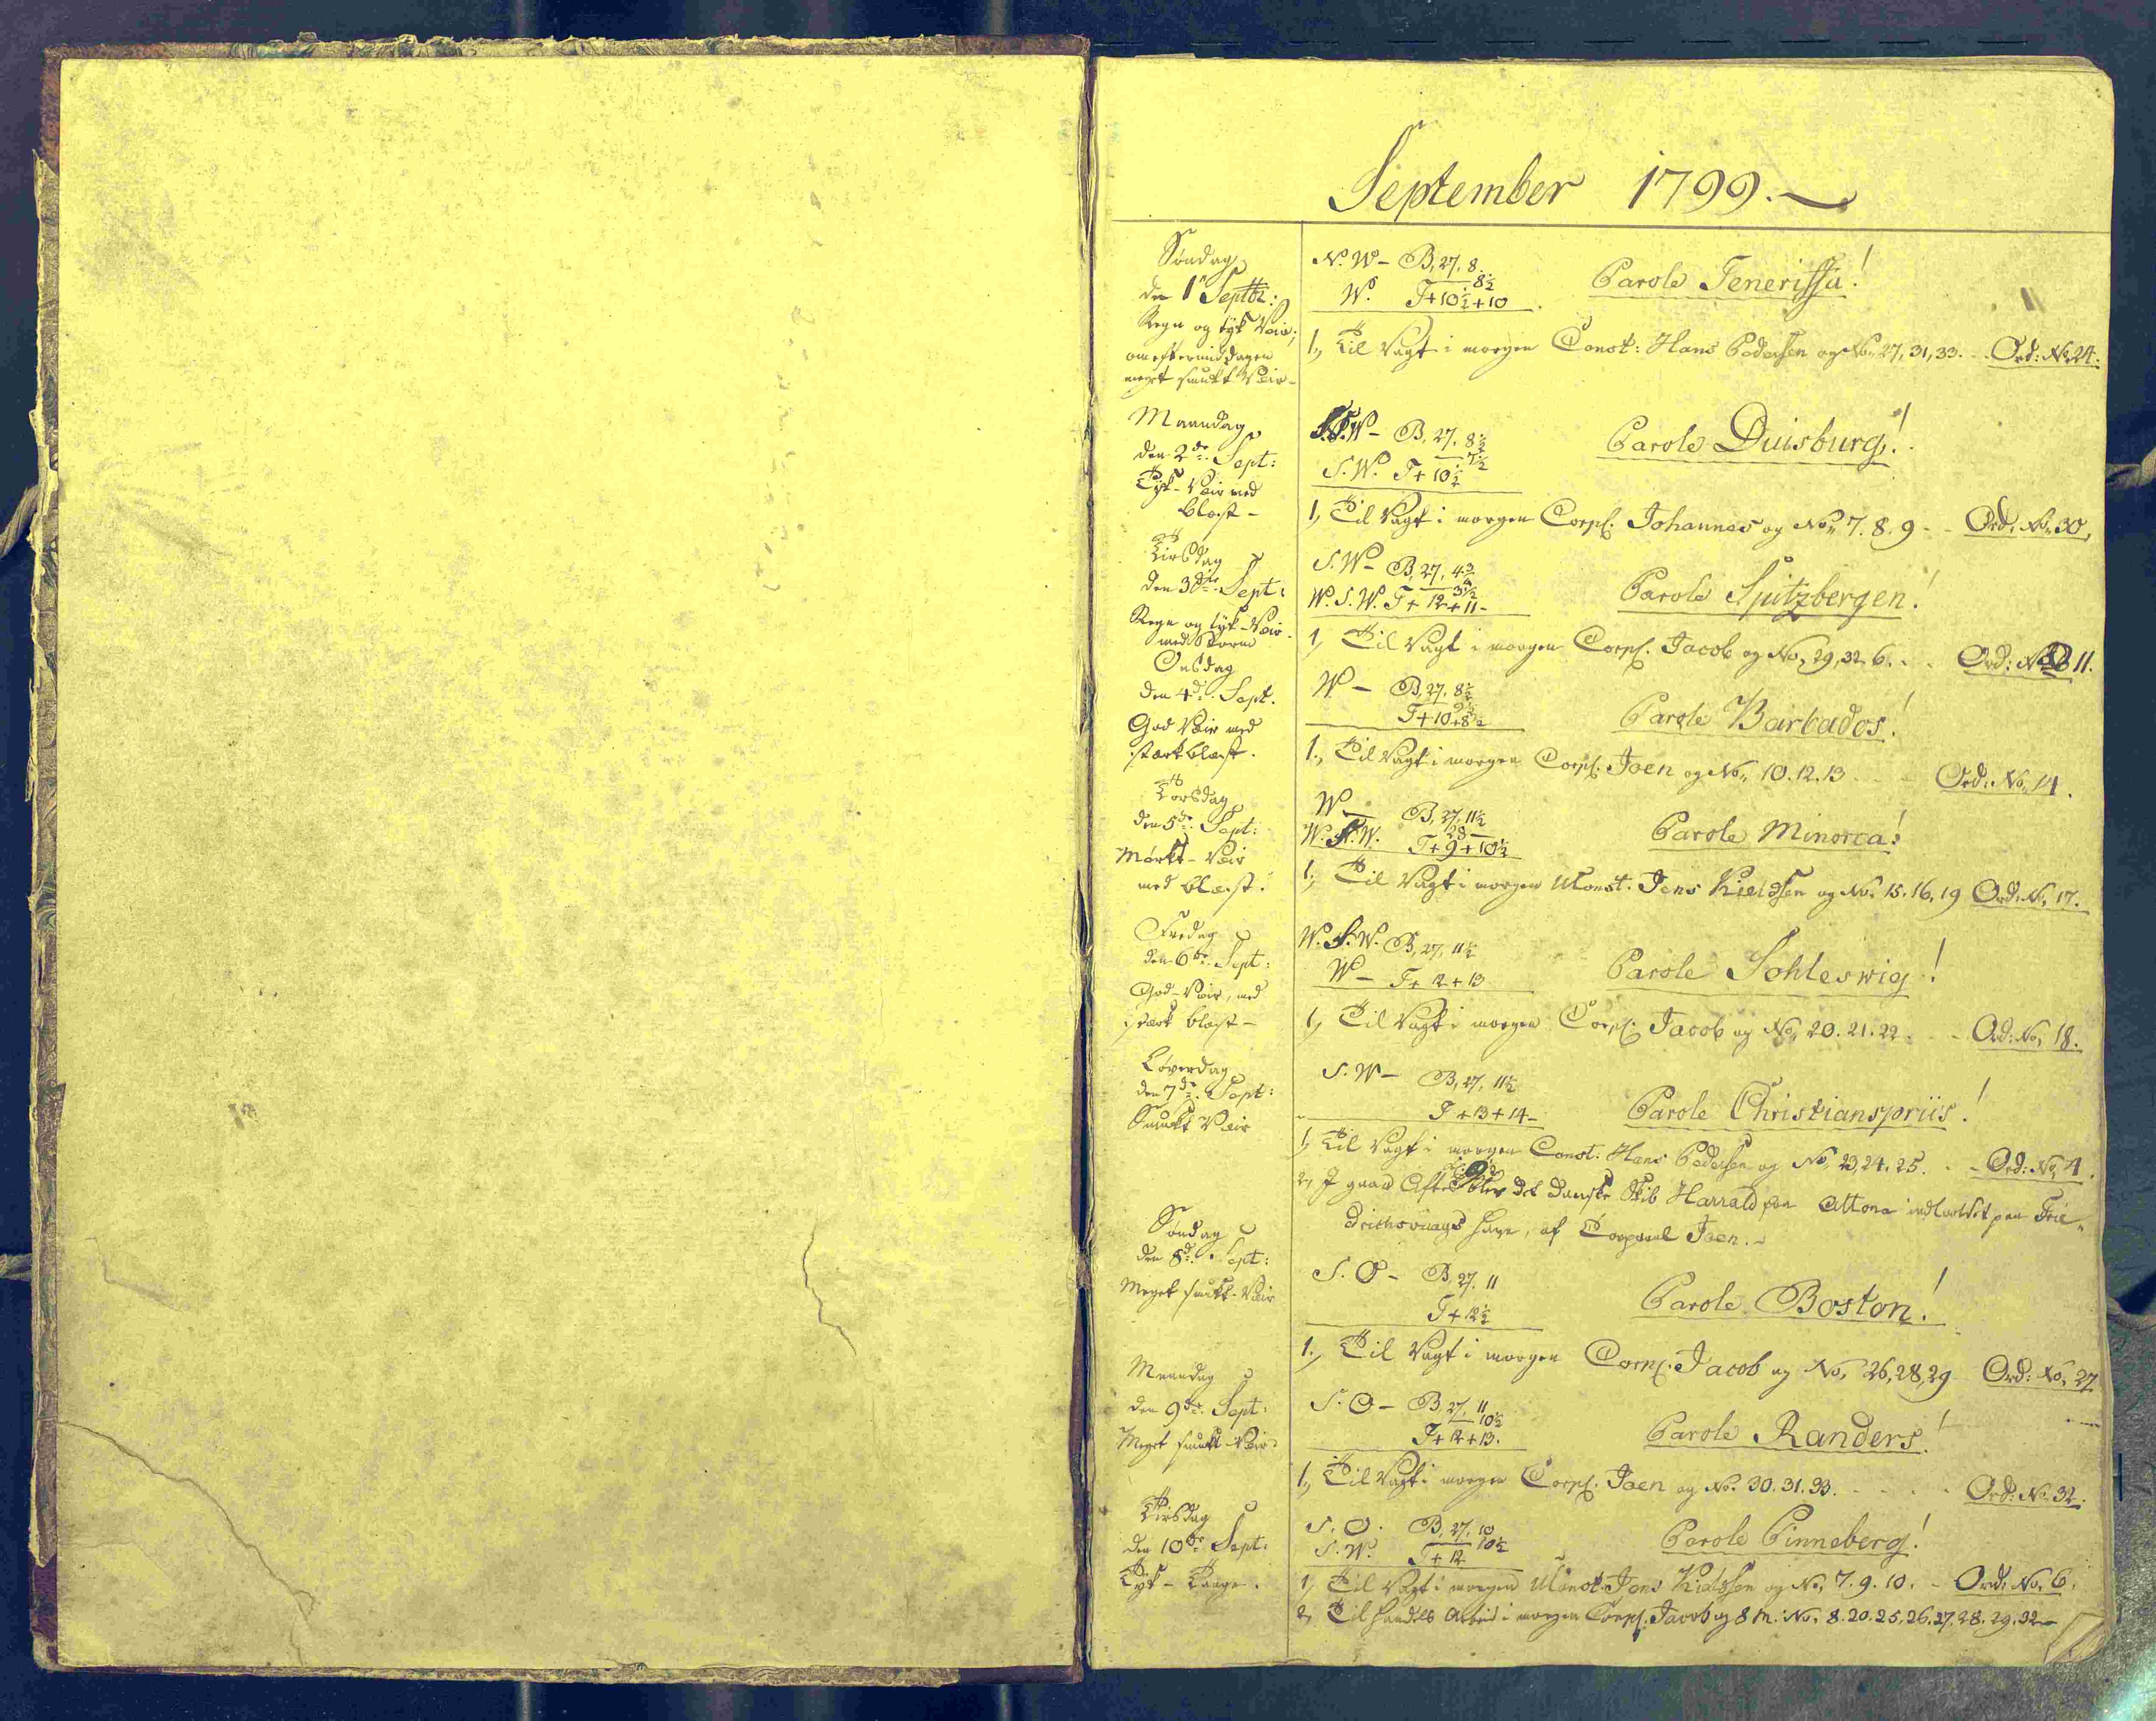 September 1799.
Søndag
den 1 Septbr:
Regn og tyk Veir,
om eftermiddagen
meget smukt Veir
N. W - B, 27, 8.
8½
W. T + 10½ + 10
Parole Teneriffa!
1, Til Vagt i morgen Const: Hans Pedersen og No 27, 31, 33. - Ord: No 24.
Maandag
den 2de Sept:
Tyk - Veir med
blæst -
W - B, 27. 8½
7½
S. W. T + 10½
Parole Duisburg!
1, Til Vagt i morgen Corpl. Johannes og No 7. 8. 9 - - Ord. No 30,
Tirsdag
den 3die Sept:
Regn og tyk - Veir
med Storm
S. W - B, 27, 4¾
3½
W. S. W. T + 12 + 11 -
Parole Spitzbergen!
1, Til Vagt i morgen Corpl. Jacob og No, 29, 32, 6. - - Ord: No 11.
Onsdag
den 4de Sept.
God Veir med
stærk blæst.
W - B, 27, 8½
9½
T + 10 + 8½
Parole Barbados!
1., Til Vagt i morgen Corpl. Joen og No 10. 12. 13 - - - Ord: No 14.
Torsdag
den 5te Sept:
Mørkt - Veir
med blæst.
W - B, 27, 11½
28 -
W. S. W. T + 9 + 10½
Parole Minorca!
1, Til Vagt i morgen Const. Jens Kieldsen og No 15. 16. 19 Ord: No 17.
Fredag
den 6te Sept:
God - Veir, med
stærk blæst -
W. S. W. B, 27, 11½
W - T + 12 + 13
Parole Schleswig!
1, Til Vagt i morgen Corpl. Jacob og No 20. 21. 22. - - Ord: No 18.
Løverdag
den 7de Sept:
Smukt Veir
S. W - B, 27, 11½
T + 13 + 14 -
Parole Christianspriis!
1, Til Vagt i morgen Const: Hans Pedersen og No 23, 24, 25. - - Ord: No 4.
2, I gaar Aftes blev det Danske Skib Harrald fra Altona indlodset paa Frie-
drichsvaags Havn, af Corporal Joen. -
Søndag
den 8de Sept:
Meget smukt - Veir
S. O - B, 27. 11
T + 12½
Parole Boston!
1., Til Vagt i morgen Corpl. Jacob og No, 26, 28, 29 Ord: No, 27
Maandag
den 9de Sept:
Meget smukt Veir
S. O - B, 27. 11
10½
T + 12 + 13.
Parole Randers!
1, Til Vagt i morgen Corpl. Joen og No. 30. 31. 33. - - - - Ord: No. 32.
Tirsdag
den 10de Sept:
Tyk - Taage.
S. O. B, 27, 10
10½
S. W. T + 12
Parole Pinneberg!
1, Til Vagt i morgen Const. Jens Kieldsen og No, 7. 9. 10. - Ord: No, 6.
2, Til Handels Arbeid i morgen Corpl. Jacob og 8 M: No, 8. 20. 25. 26. 27. 28. 29. 32 -